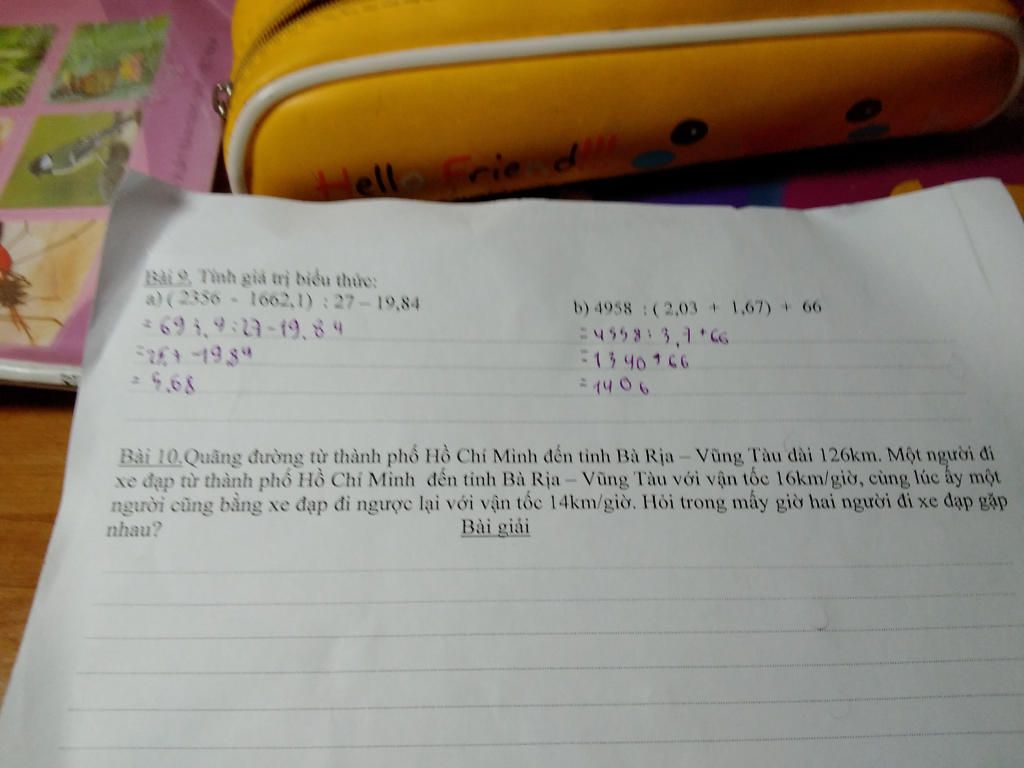 Hello Friend!!!
Bài 9. Tính giá trị biểu thức:
a) ( 2356 - 1662,1) : 27 – 19,84
b) 4958 : ( 2,03 + 1,67) + 66
= 693,9:27-19,84
= 4958:3,7+66
=25,7-19,84
=1340+66
= 5,68
=1406
Bài 10.Quãng đường từ thành phố Hồ Chí Minh đến tỉnh Bà Rịa – Vũng Tàu dài 126km. Một người đi
xe đạp từ thành phố Hồ Chí Minh đến tỉnh Bà Rịa – Vũng Tàu với vận tốc 16km/giờ, cùng lúc ấy một
người cũng bằng xe đạp đi ngược lại với vận tốc 14km/giờ. Hỏi trong mấy giờ hai người đi xe đạp gặp
nhau?
Bài giải